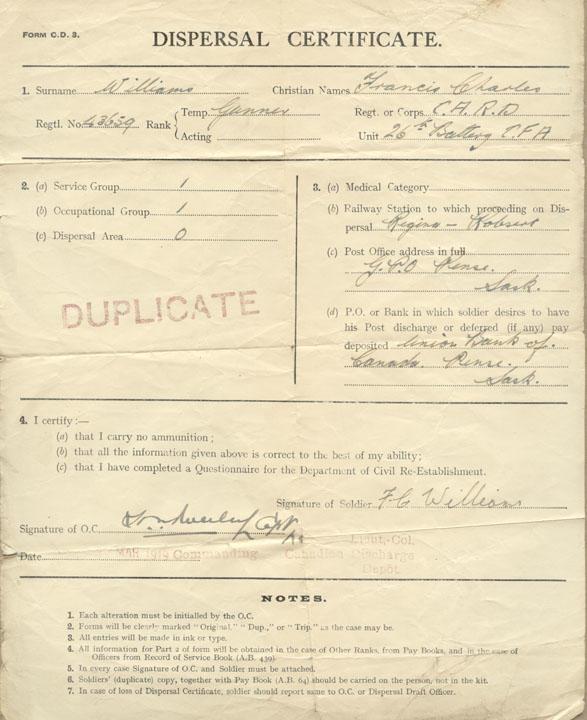 FORM C.D. 3.
DISPERSAL CERTIFICATE.
1. Surname Williams Christian Names Francis Charles
Regtl. No. 43659 Rank { Temp. Gunner Regt. or Corps C.A.R.D
Acting Unit 26th Battery C.F.A
2. (a) Service Group 1
(b) Occupational Group 1
(c) Dispersal Area 0
DUPLICATE
3. (a) Medical Category
(b) Railway Station to which proceeding on Dis-
persal Regina -
(c) Post Office address in full
G.P.O Pense.
Sask.
(d) P.O. or Bank in which soldier desires to have
his Post discharge or deferred (if any) pay
deposited Union Bank of
Canada. Pense.
Sask.
4. I certify :—
(a) that I carry no ammunition ;
(b) that all the information given above is correct to the best of my ability ;
(c) that I have completed a Questionnaire for the Department of Civil Re-Establishment.
Signature of Soldier F C Williams
Signature of O.C. Capt
Date MAR 1919 Commanding Lieut.-Col.
Canadian Discharge
Depôt.
NOTES.
1. Each alteration must be initialled by the O.C.
2. Forms will be clearly marked "Original," "Dup.," or "Trip." as the case may be.
3. All entries will be made in ink or type.
4. All information for Part 2 of form will be obtained in the case of Other Ranks, from Pay Books, and in the case of
Officers from Record of Service Book (A.B. 439).
5. In every case Signature of O.C. and Soldier must be attached.
6. Soldiers' (duplicate) copy, together with Pay Book (A.B. 64) should be carried on the person, not in the kit.
7. In case of loss of Dispersal Certificate, soldier should report same to O.C. or Dispersal Draft Officer.